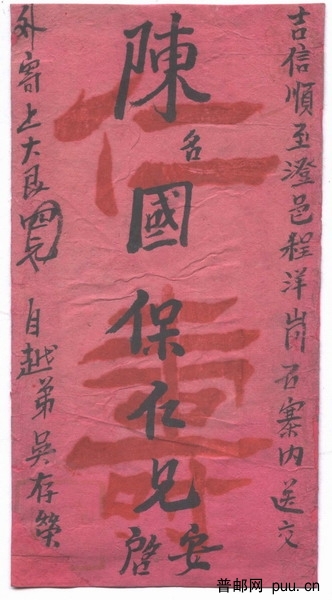 吉信順至澄邑程洋崗石寨内送交
陳名國保仁兄安啓
外寄上大艮四元 自越弟吳存榮
普邮网 puu.cn